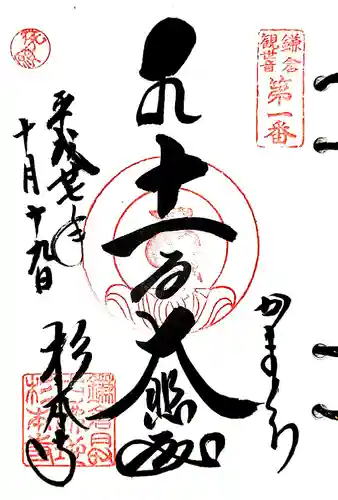 鎌倉
観世音
第一番
かまくら
十一面大悲殿
平成廿七年
十月十九日
杉本寺